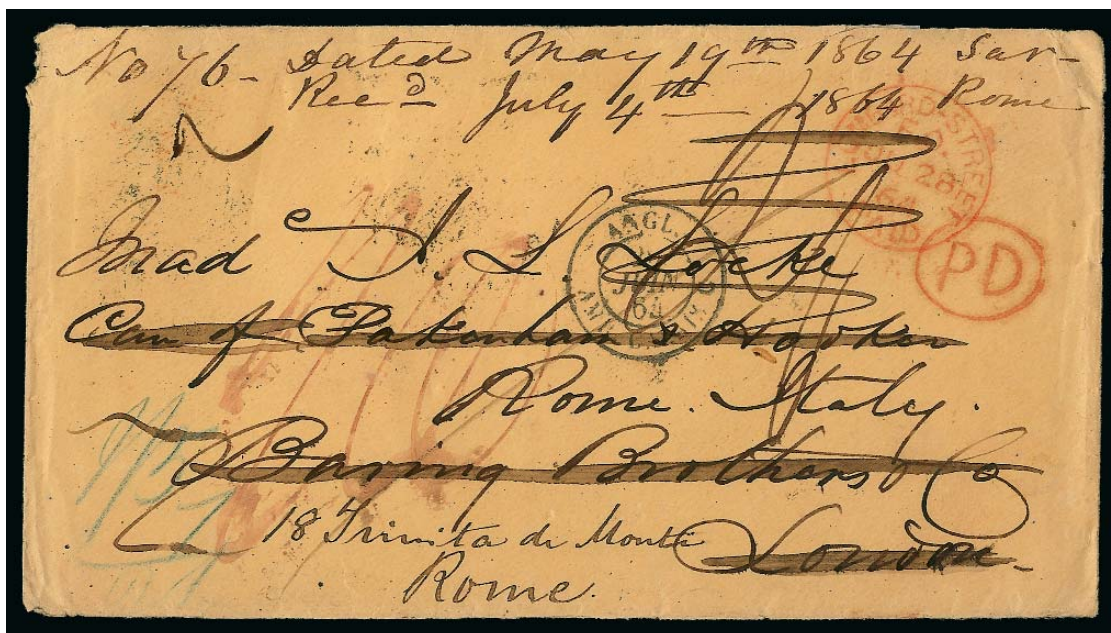 No 76 - Dated May 19th 1864 Sar-
Recd July 4th - 1864 Rome
LOMBARD-STREET
28
64
PAID
PD
ANGL.
JUIN
64
Mad A. L Locke
Care of Pakenham & Hooker
Rome. Italy.
Baring Brothers & Co
18 Trinita de Monti London-
Rome.